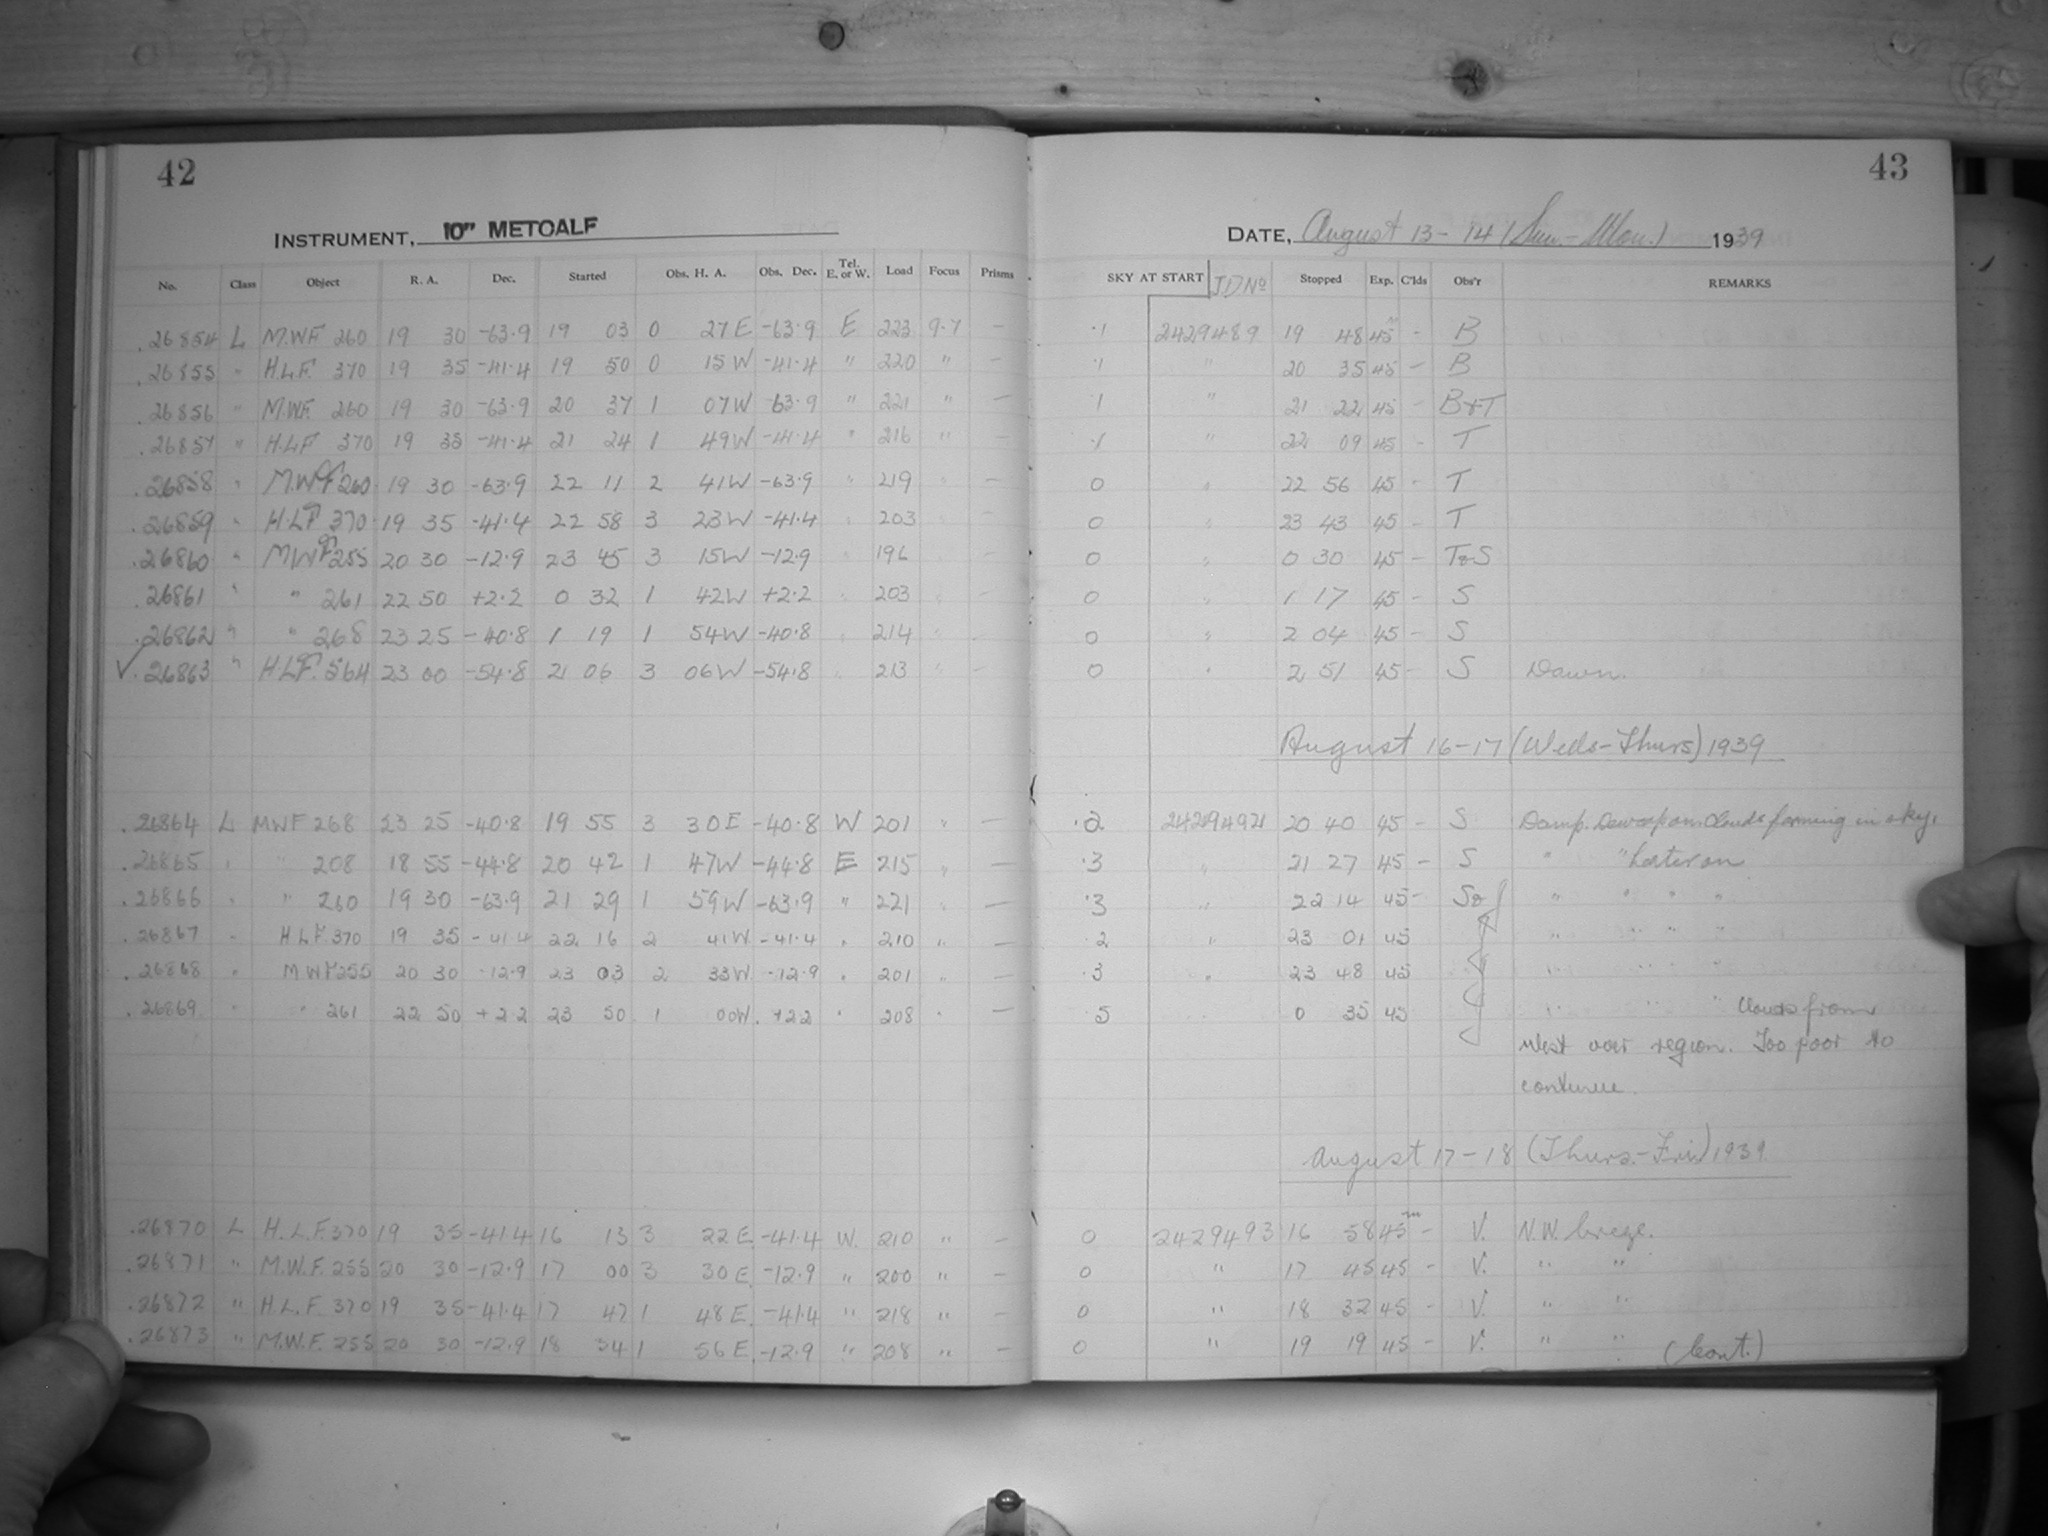 42
INSTRUMENT, 10" METCALF
No. Class Object R. A. Dec. Started Obs. H. A. Obs. Dec. Tel. E. or W. Load Focus Prisms
.26854 L M.W.F 260 19 30 -63.9 19 03 0 27 E -63.9 E 223 9.7 -
.26855 " H.L.F. 370 19 35 -41.4 19 50 0 15 W -41.4 " 220 " -
.26856 " M.W.F. 260 19 30 -63.9 20 37 1 07W -63.9 " 221 " -
.26857 " H.L.F 370 19 35 -41.4 21 24 1 49W -41.4 " 216 " -
.26858 " M.W.F 260 19 30 -63.9 22 11 2 41W -63.9 " 219 " -
.26859 " H.L.F 370 19 35 -41.4 22 58 3 23W -41.4 " 203 " -
.26860 " M.W.F 255 20 30 -12.9 23 45 3 15W -12.9 " 196 " -
.26861 " " 261 22 50 +2.2 0 32 1 42W +2.2 " 203 " -
.26862 " " 268 23 25 -40.8 1 19 1 54W -40.8 " 214 " -
✓.26863 " H.L.F. 564 23 00 -54.8 2 06 3 06W -54.8 " 213 " -
.26864 L MWF 268 23 25 -40.8 19 55 3 30E -40.8 W 201 " -
.26865 " " 208 18 55 -44.8 20 42 1 47W -44.8 E 215 " -
.26866 " " 260 19 30 -63.9 21 29 1 59W -63.9 " 221 " -
.26867 " H.L.F. 370 19 35 -41.4 22 16 2 41W -41.4 " 210 " -
.26868 " MWF 255 20 30 -12.9 23 03 2 33W -12.9 " 201 " -
.26869 " " 261 22 50 +2.2 23 50 1 00W. +2.2 " 208 " -
.26870 L H.L.F. 370 19 35 -41.4 16 13 3 22 E. -41.4 W. 210 " -
.26871 " M.W.F. 255 20 30 -12.9 17 00 3 30 E. -12.9 " 200 " -
.26872 " H.L.F. 370 19 35 -41.4 17 47 1 48 E. -41.4 " 218 " -
.26873 " M.W.F. 255 20 30 -12.9 18 34 1 56 E. -12.9 " 208 " -
43
DATE, August 13-14 (Sun.-Mon.) 1939
SKY AT START JD No Stopped Exp. C'lds Obs'r REMARKS
.1 2429489 19 48 45m - B
.1 " 20 35 45 - B
.1 " 21 22 45 - B&T
.1 " 22 09 45 - T
0 " 22 56 45 - T
0 " 23 43 45 - T
0 " 0 30 45 - T&S
0 " 1 17 45 - S
0 " 2 04 45 - S
0 " 2 51 45 - S Dawn.
August 16-17 (Weds-Thurs) 1939
.2 2429492 20 40 45 - S Damp. Clouds forming in sky.
.3 " 21 27 45 - S " " Later on
.3 " 22 14 45 - S& " " " "
.2 " 23 01 45 " " " "
.3 " 23 48 45 " " " "
.5 0 35 45 " " " Clouds from
West over region. Too poor to
continue.
August 17-18 (Thurs.-Fri) 1939
0 2429493 16 58 45m - V. N.W. breeze.
0 " 17 45 45 - V. " "
0 " 18 32 45 - V. " "
0 " 19 19 45 - V. " " (Cont.)